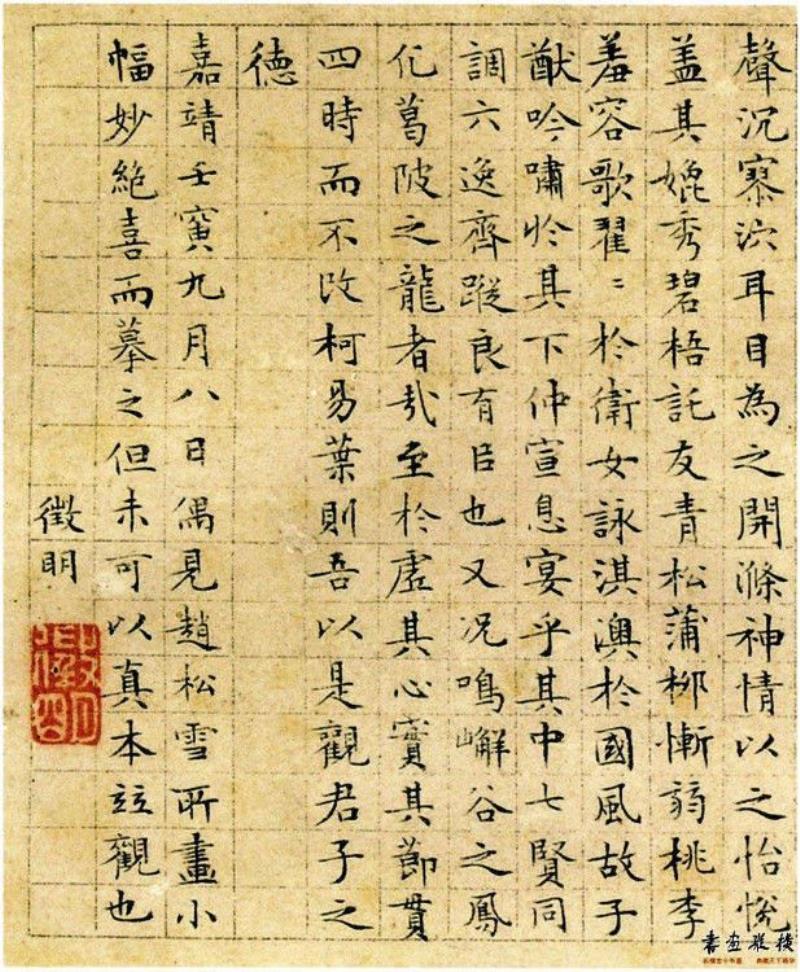 聲沉寥泬耳目為之開滌神情以之怡悅
盖其媲秀碧梧託友青松蒲柳慚弱桃李
羞容歌翟〻於衛女詠淇澳於國風故子
猷吟嘯於其下仲宣息宴乎其中七賢同
調六逸齊蹤良有㠯也又况鳴嶰谷之鳳
化葛陂之龍者哉至於虛其心實其節貫
四時而不改柯易葉則吾以是觀君子之
德
嘉靖壬寅九月八日偶見趙松雪所畫小
幅妙絶喜而摹之但未可以真本竝觀也
徵明